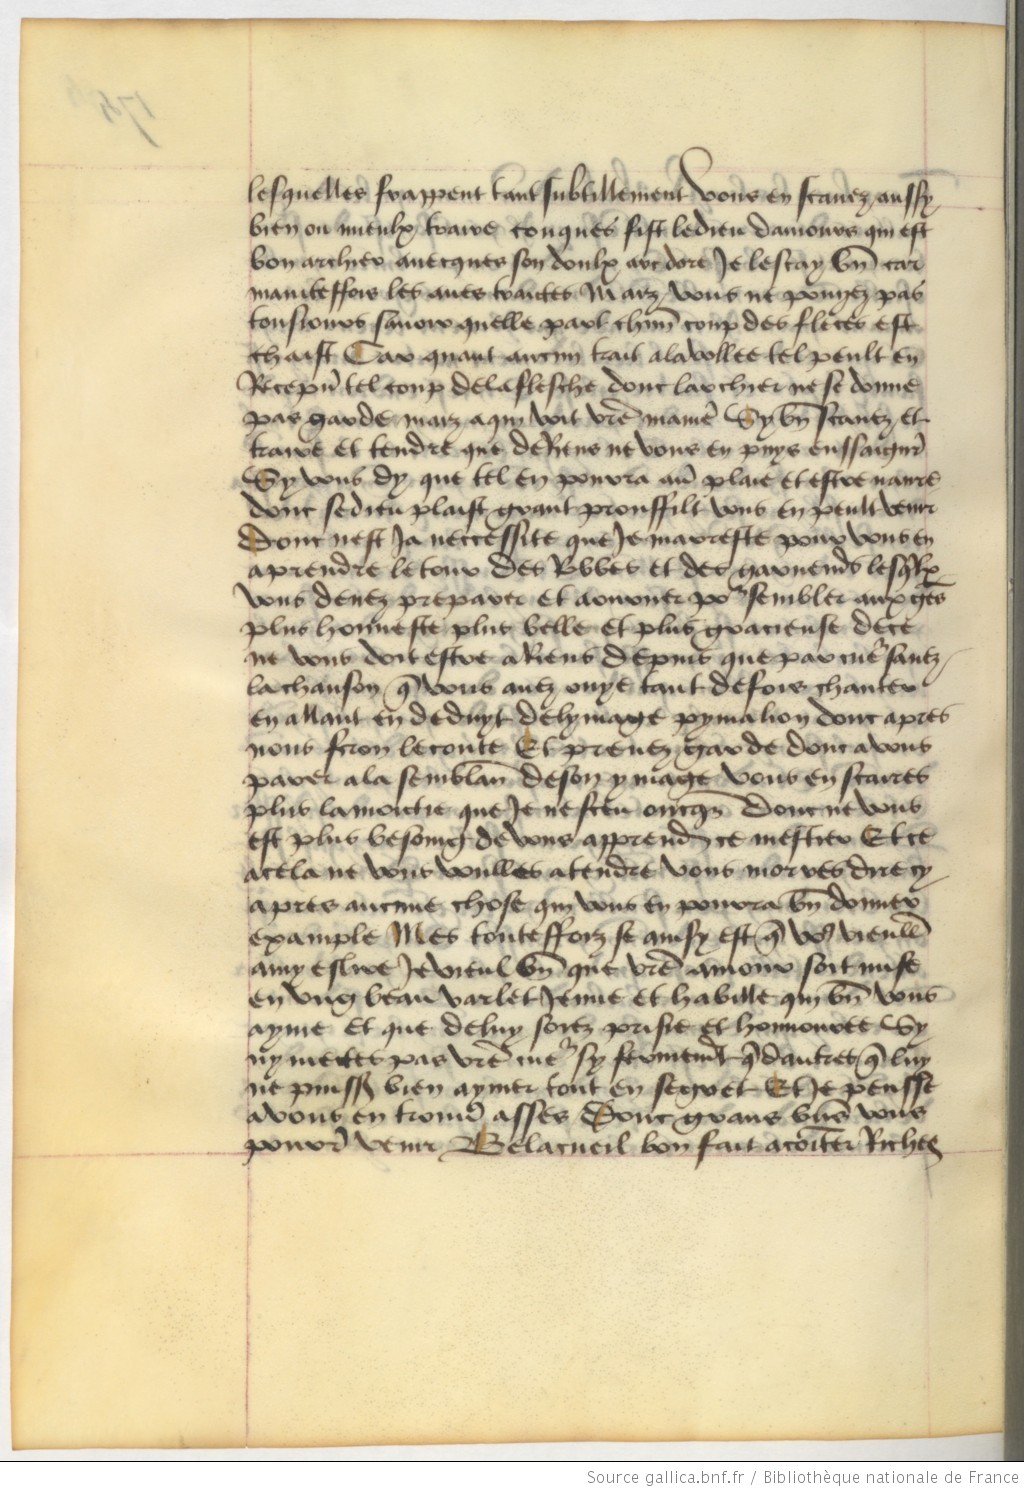 lesquelles frappent tant subtillement vous en scauez aussy
bien ou mieulx traire conques fist le dieu damours qui est
bon archier auecques son doulx arc dore Je le scay bn̄ car
mainteffois les aues traictes Marz vous ne pouuez pas
tousiours sauoir quelle part chūn coup des fleces est
chaist Car quant aucun trait a la vollee tel peult en
Recepu͛ tel coup de la flesche dont larchier ne se donne
pas garde marz a qui voit vr̄e manie͛ Sy bn̄ scauez et
traire et tendre que de Riens ne vous en puys enssaign͛
Sy vous dy que tel en pourra au͛ plaie et estre naure
dont se dieu plaist grant prouffilt vous en peult venir
Donc nest Ja neccessite que Je marreste pour vous en
aprendre le tour des Robbes et des garnemēs lesq̄lx
vous deuez preparer et aourner po͛ sembler aux gēs
plus honneste plus belle et plus gracieuse de ce
ne vous doit estre a Riens depuis que par cue͛ sauez
la chanson q̄ vous auez ouye tant de fois chanter
en allant en deduyt de lymage pymalion dont apres
nous feron le conte Et prenez garde donc a vous
parer a la semblan͛ de son ymage vous en scaures
plus la moictie que Je ne sceu oncq͛ Donc ne vous
est plus besoing de vous apprend͛ ce mestier Et ce
a cela ne vous voulles atendre vous morres dire cy
apres aucune chose qui vous en pourra bn̄ donner
example Mes touteffoiz se ainsy est q̄ vo͛ vieulle͛
amy eslire Je vieul bn̄ que vr̄e amour soit mise
en vng beau varlet Jenne et habille qui bn̄ vous
ayme et que de luy soiez prisie et honnouree Sy
ny mettes pas vr̄e cue͛ sy fermemēt q̄ dautres q̄ luy
ne puissez bien aymer tout en segret Et Je pensse
a vous en trouue͛ asses Dont grans biēs vous
pourr͛ venir Belacueil bon fait acointer Riches